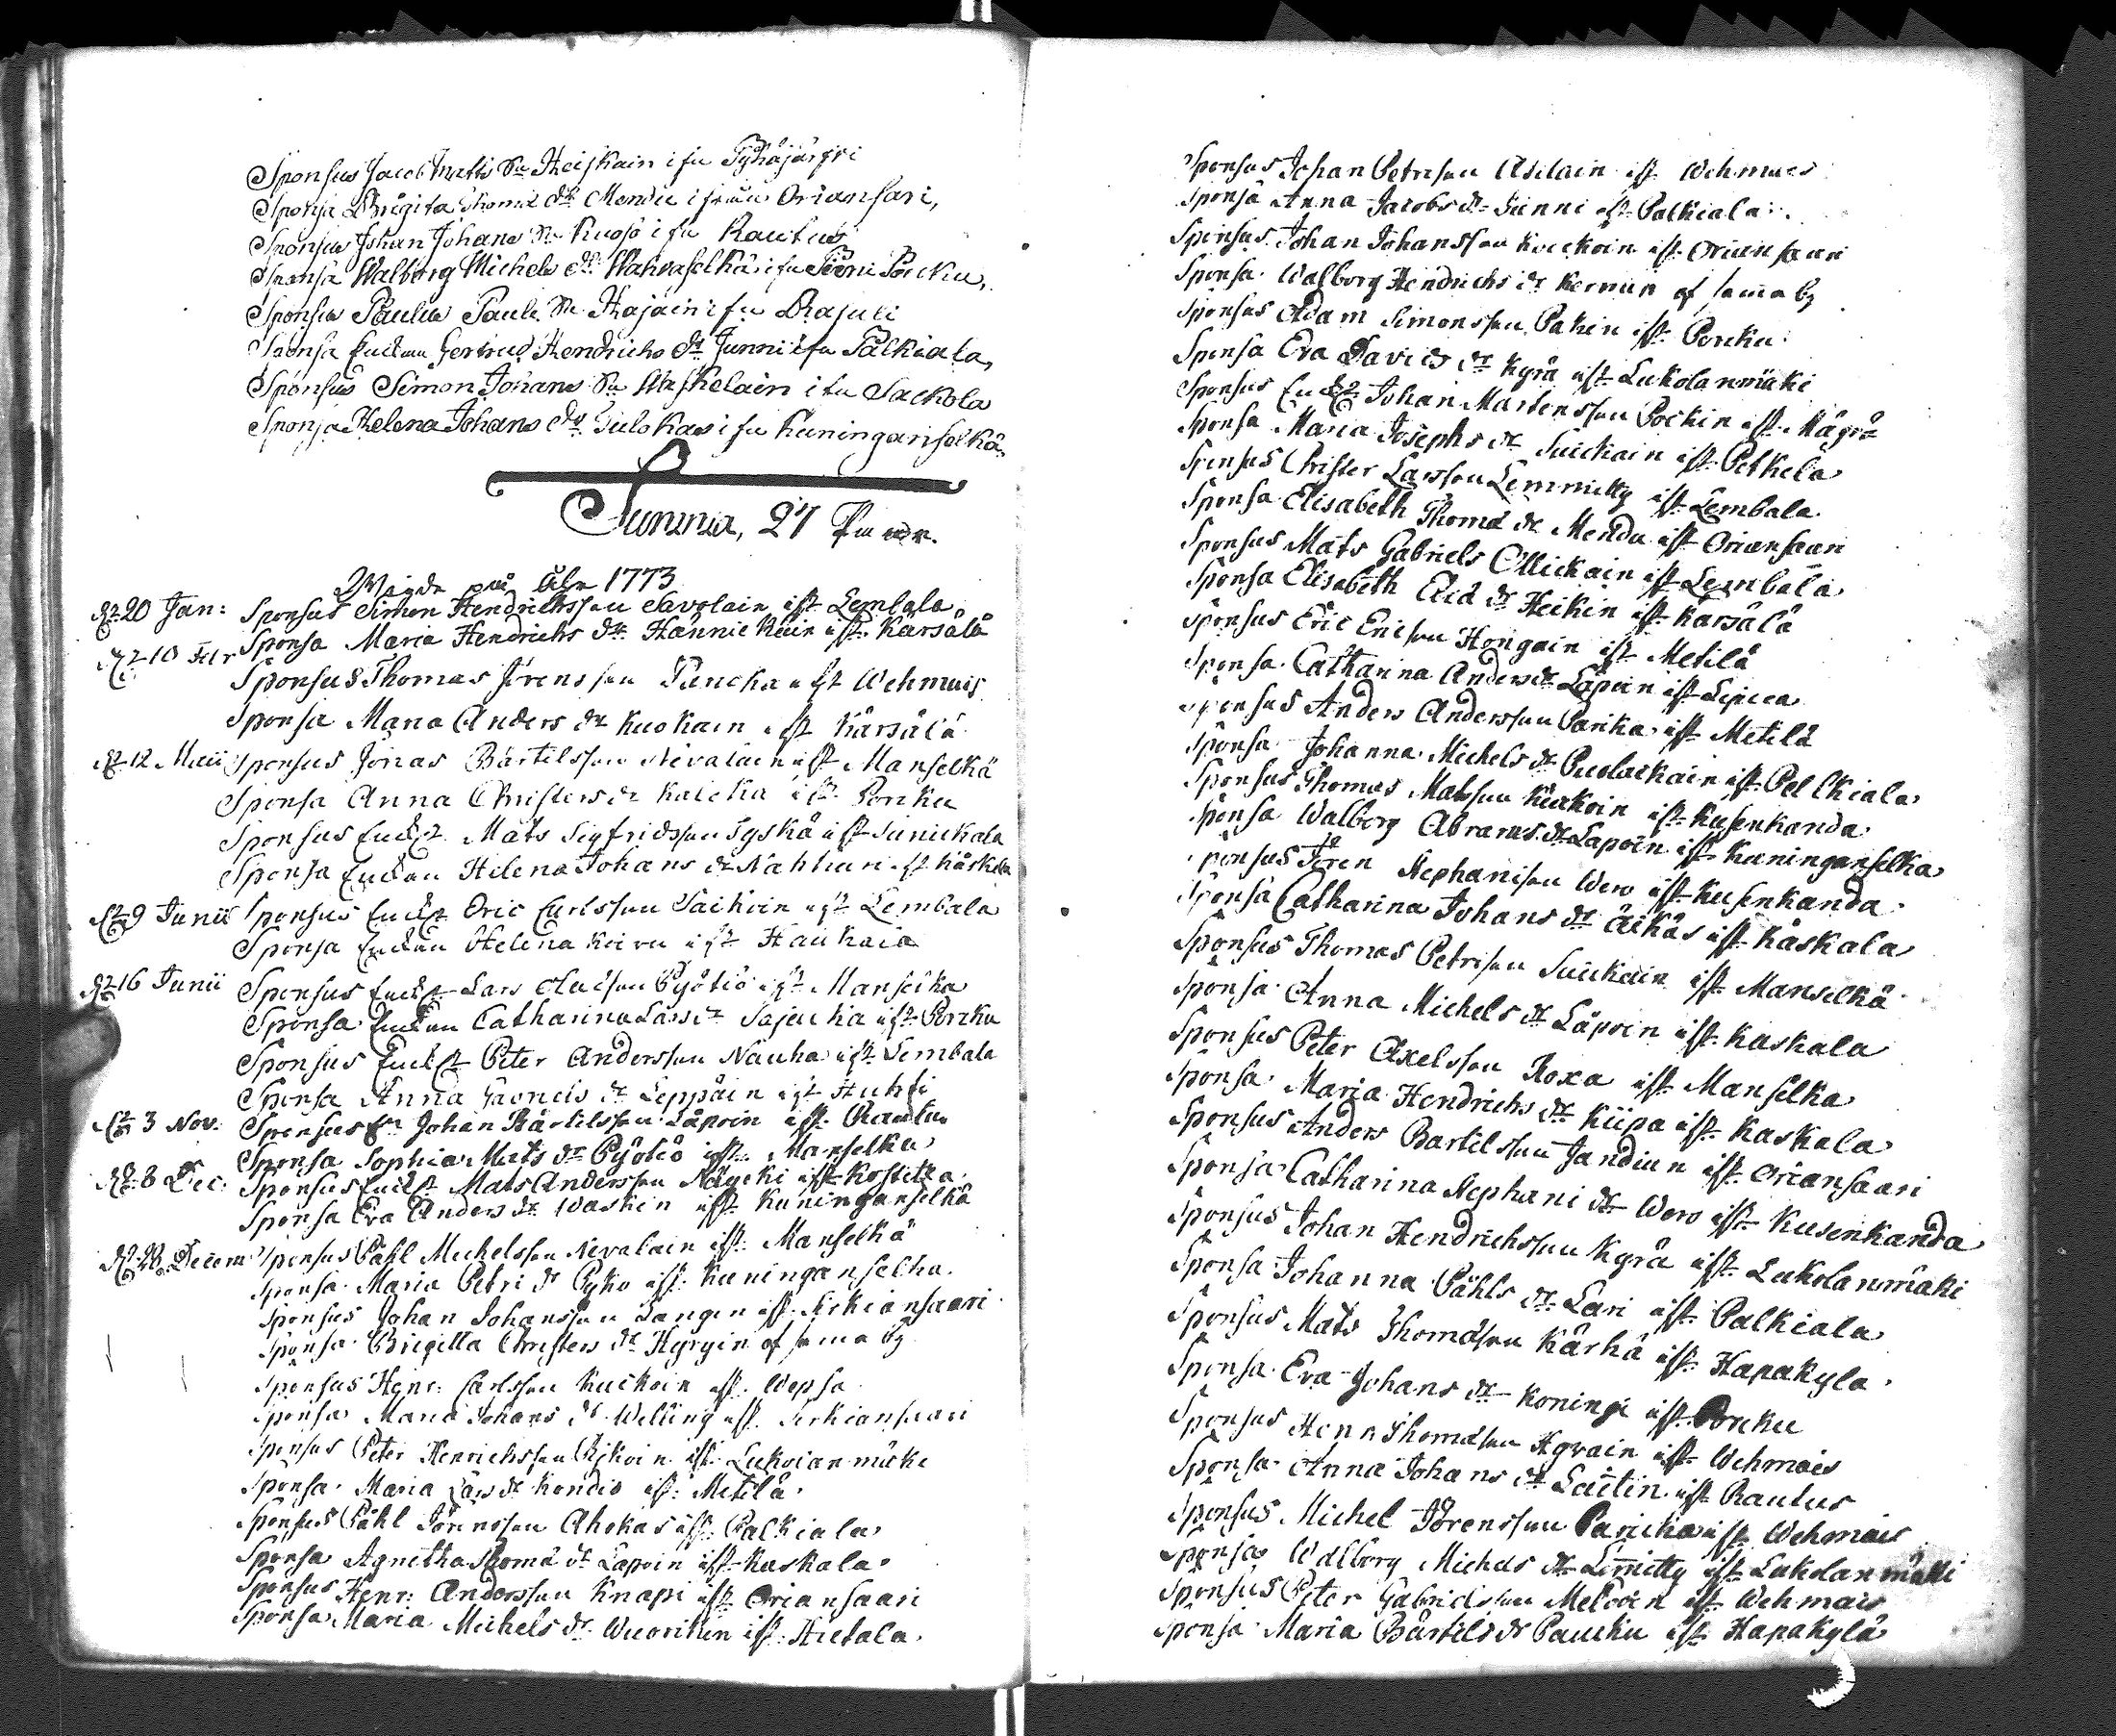 Sponsus Jacob Matts Sn Heiskain ifrn Pyhäjärfvi
Sponsa Brigita Thomæ dr Mendu ifrån Oriansari,
Sponsus Johan Johans Sn Kuoso i frn Rautus
Sponsa Walborg Michels dr Wahvaselkä i frn Porcku,
Sponsus Paulus Pauli Sn Kajain i frn Rajuli
Sponsa Enckan Gertrud Hendrichs dr Junni i frn Pälkiala,
Sponsus Simon Johans Sn Waskelain i frn Sackola
Sponsa Helena Johans dr Gulokas i frn Kuninganselkä.
Summa, 27 Par
Wigde på åhr 1773
d. 20 Jan: Sponsus Simon Hendrichsson Savolain ifr. Lembala
Sponsa Maria Hendrichs dr Hännickäin ifr. Kärsälä
d. 10 Febr Sponsus Thomas Jörensson Paricka ifr Wehmais
Sponsa Maria Anders dr Kuokain ifr Kärsälä
d. 12 Maii Sponsus Jonas Bärtilsson Nivalain ifr Manselkä
Sponsa Anna Christers dr Kaicka ifr. Porcku
Sponsus Enckl. Mats Sigfridsson Tyskä ifr Sunickala
Sponsa Enckan Helena Johans dr Nahkun ifr Kåskala
d. 9 Junii Sponsus Enckl. Eric Carlsson Väikoin ifr Lembala
Sponsa Enckan Helena Koivu ifr Haukaia
d. 16 Junii Sponsus Enckl. Lars Clausson Pyötiö ifr Manselka
Sponsa Enckan Catharina Lars dr Sajucka ifr Porcku
Sponsus Enckl Peter Andersson Näuha ifr Lembala
Sponsa Anna Gabriels dr Leppäin ifr Huhti
d. 3 Nov. Sponsus Johan Bärtilsson Låpoin ifr. Rautus
Sponsa Sophia Mats dr Pyötiö ifr. Manselka
d. 8 Dec: Sponsus Enckl Mats Andersson Näycki ifr Kostitza
Sponsa Eva Anders dr Waskin ifr Kuninganselkä
d. 28 Decem Sponsus Påhl Michelsson Nevalain ifr. Manselkä
Sponsa Maria Petri dr Pyko ifr. Kuninganselka.
Sponsus Johan Johansson Langen ifr. Sirkiansaari
Sponsa Brigitta Christers dr Hyryin af sama by
Sponsus Henr: Carlsson Kuckoin ifr. Wepsa
Sponsa Maria Johans dr Welling ifr. Sirkiansaari
Sponsus Peter Henrichsson Pykoin ifr. Lukoianmäki
Sponsa Maria Lars dr Kondio ifr: Metilä.
Sponsus Påhl Jörensson Ahokas ifr. Palkiala
Sponsa Agnetha Thomæ dr Lapoin ifr Kaskala
Sponsus Henr: Andersson Knapi ifr Oriansaari
Sponsa Maria Michels dr Wuorikin ifr. Hietala.
Sponsus Johan Petrisson Asilain ifr Wehmais
Sponsa Anna Jacobs dr Junni ifr Palkiala.
Sponsus Johan Johansson Kuckoin ifr. Oriansaari
Sponsa Walborg Hendrichs dr Kernun af sama by
Sponsus Adam Simonsson Pakin ifr Porcku
Sponsa Eva Davids dr Kyrå ifr Lukolanmäki
Sponsus Enckl Johan Mårtensson Pockin ifr. Mägrä
Sponsa Maria Josephs dr Suickain ifr Petkela
Sponsus Christer Larsson Lemmitty ifr Lembala
Sponsa Elisabeth Thomæ dr Mendu ifr Oriansaari
Sponsus Mats Gabriels Ollickain ifr Lembala
Sponsa Elisabeth Elid dr Heikin ifr Karsälä
Sponsus Eric Ericson Hongain ifr Metilä
Sponsa Catharina Anders dr Låpoin ifr Lepica
Sponsus Anders Andersson Parika ifr Metilä
Sponsa Johanna Michels dr Puolackain ifr Pellkiala
Sponsus Thomas Matsson Kuckoin ifr Kusenkanda
Sponsa Walborg Abrams dr Lapoin ifr Kuninganselka
Sponsus Jören Stephanison Wero ifr Kusenkanda
Sponsa Catharina Johans dr Äikäs ifr Kåskala
Sponsus Thomas Petrison Suickain ifr Manselkä
Sponsa Anna Michels dr Låpoin ifr Kaskala
Sponsus Peter Axelsson Roxa ifr Manselka
Sponsa Maria Hendrichs dr Kiipa ifr Kaskala
Sponsus Anders Bartilsson Jandiun ifr Oriansaari
Sponsa Catharina Stephani dr Wero ifr Kusenkanda
Sponsus Johan Hendrichsson Kyrå ifr Lukolanmäki
Sponsa Johanna Påhls dr Lari ifr Palkiala
Sponsus Mats Thomæson Kärhä ifr Hapakyla
Sponsa Eva Johans dr Koningi ifr Porcku
Sponsus Henr Thomæson Hyväin ifr Wehmais
Sponsa Anna Johans dr Laitin ifr Rautus
Sponsus Michel Jörensson Paricka ifr Wehmais
Sponsa Walborg Michels dr Lemitty ifr Lukolanmäki
Sponsus Peter Gabrielsson Meloin ifr Wehmais
Sponsa Maria Bärtils dr Paucku ifr Hapakylä